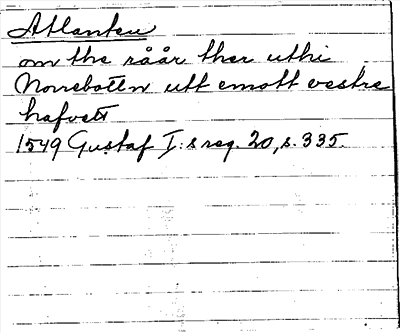 Atlanten
om the råår ther uthi
Norrebotten utt emott vestre
hafvett
1549 Gustaf I:s reg. 20, s. 335.